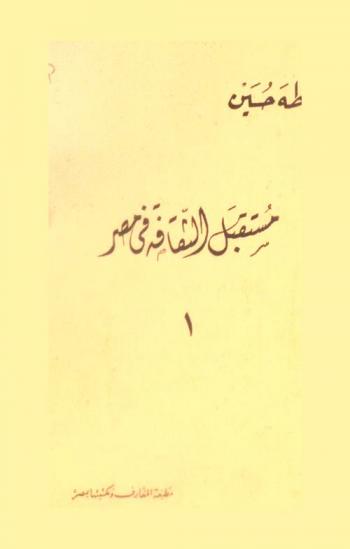 طه حسين
مستقبل الثقافة في مصر
١
مطبعة المعارف ومكتبتها بمصر